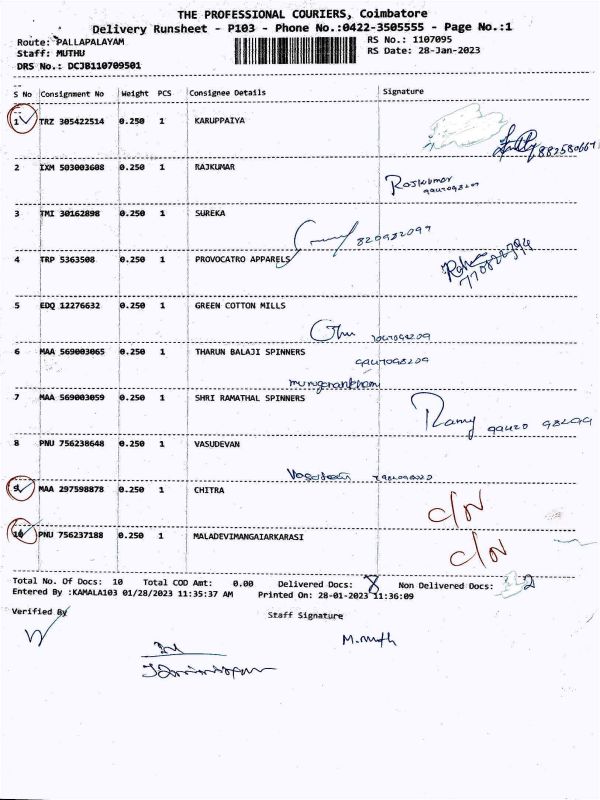 THE PROFESSIONAL COURIERS, Coimbatore
Delivery Runsheet - P103 - Phone No.:0422-3505555 - Page No.:1
Route: PALLAPALAYAM
RS No.: 1107095
Staff: MUTHU
RS Date: 28-Jan-2023
DRS No.: DCJB110709501
S No Consignment No Weight PCS Consignee Details Signature
1 TRZ 305422514 0.250 1 KARUPPAIYA
2 IXM 503003608 0.250 1 RAJKUMAR
Rajkumar
3 TMI 30162898 0.250 1 SUREKA
4 TRP 5363508 0.250 1 PROVOCATRO APPARELS
5 EDQ 12276632 0.250 1 GREEN COTTON MILLS
6 MAA 569003065 0.250 1 THARUN BALAJI SPINNERS
7 MAA 569003059 0.250 1 SHRI RAMATHAL SPINNERS
Ramy
8 PNU 756238648 0.250 1 VASUDEVAN
9 MAA 297598878 0.250 1 CHITRA
C/N
10 PNU 756237188 0.250 1 MALADEVIMANGAIARKARASI
C/N
Total No. Of Docs: 10 Total COD Amt: 0.00 Delivered Docs: 8 Non Delivered Docs: 2
Entered By :KAMALA103 01/28/2023 11:35:37 AM Printed On: 28-01-2023 11:36:09
Verified By Staff Signature
M.Muth